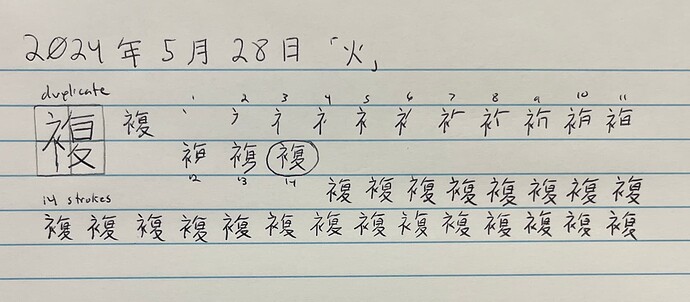 2024年5月28日「火」
duplicate
1 2 3 4 5 6 7 8 9 10 11
複 複
複
12 13 14
複 複 複 複 複 複 複 複
14 strokes
複 複 複 複 複 複 複 複 複 複 複 複 複 複